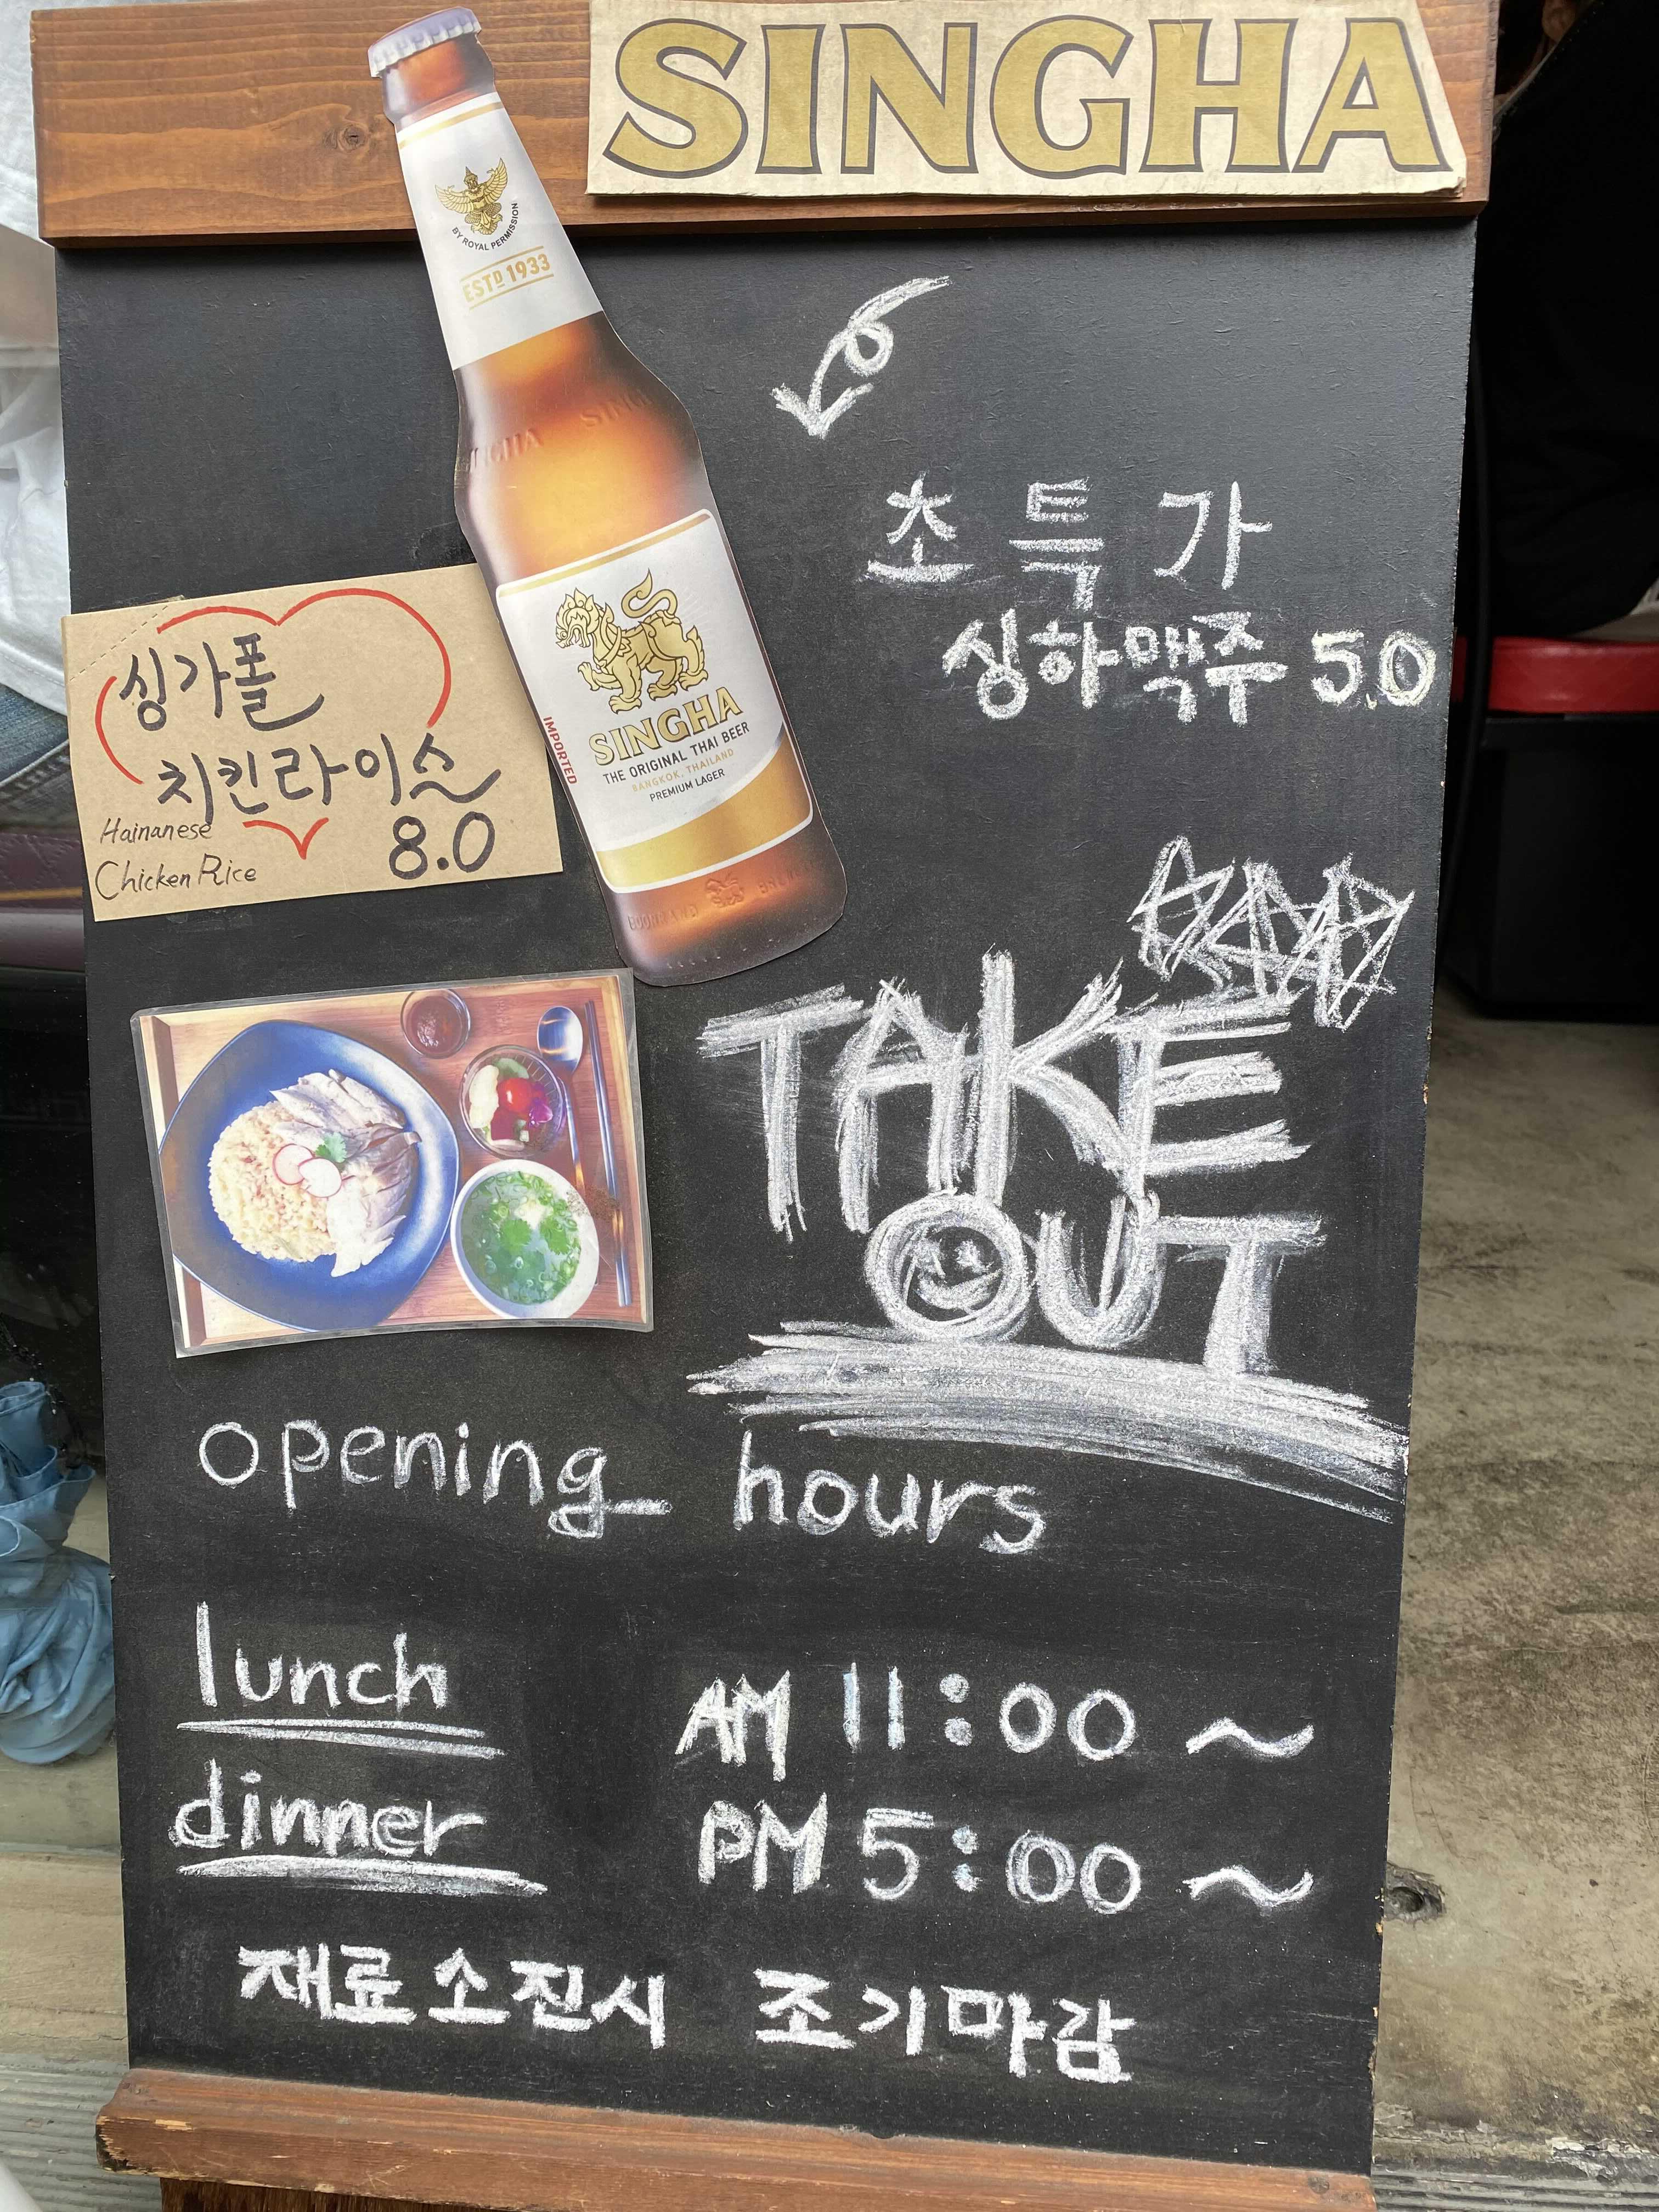 SINGHA
BY ROYAL PERMISSION
ESTD 1933
SINGHA
초특가
싱하맥주 5.0
IMPORTED
SINGHA
THE ORIGINAL THAI BEER
BANGKOK, THAILAND
PREMIUM LAGER
싱가폴
치킨라이스
Hainanese
Chicken Rice
8.0
TAKE
OUT
opening hours
lunch AM 11:00 ~
dinner PM 5:00 ~
재료소진시 조기마감